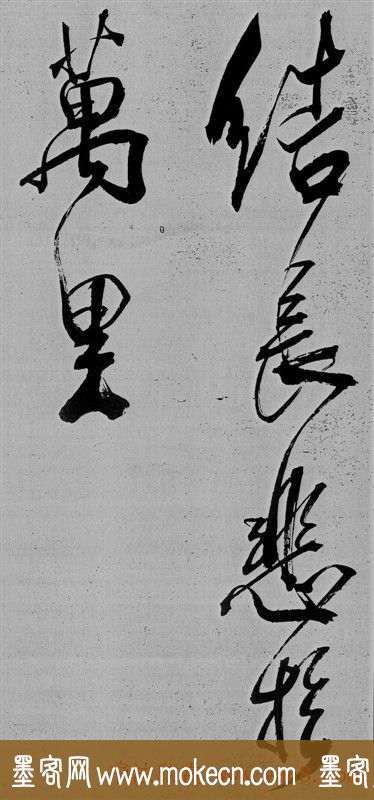 結長悲於
萬里
墨客网www.mokecn.com墨客网